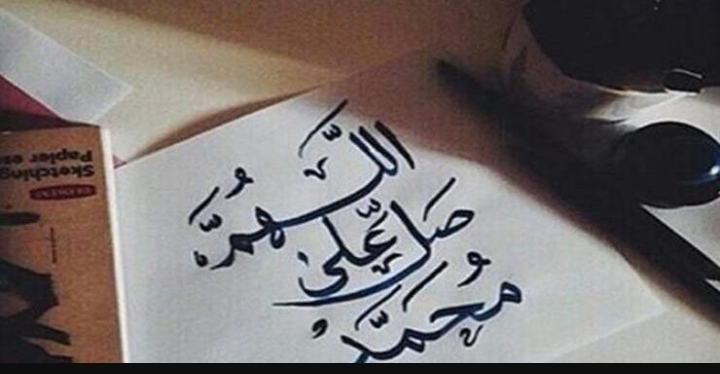 اللَّهُمَّ
صَل عَلى
مُحَمَّد
Sketching
Papier es